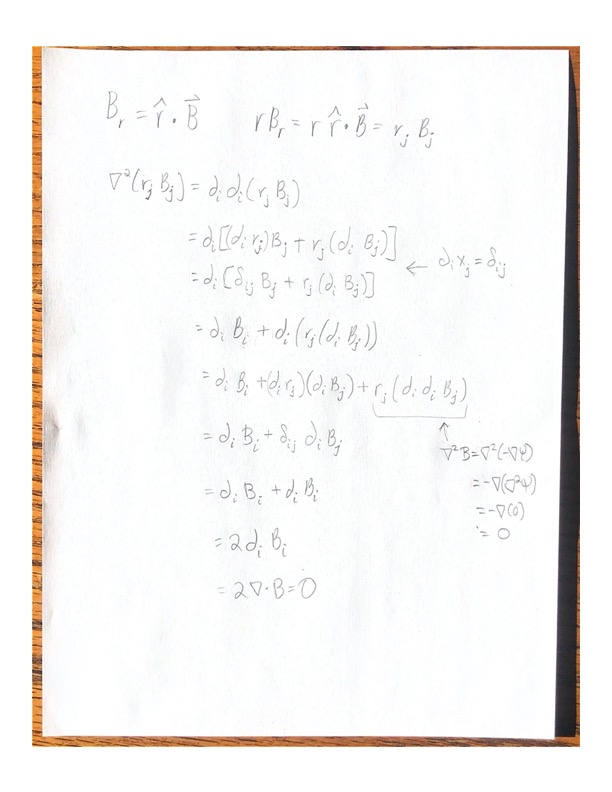 B_r = r̂ · B⃗    rB_r = r r̂ · B⃗ = r_j B_j
∇²(r_j B_j) = ∂_i ∂_i (r_j B_j)
= ∂_i [(∂_i r_j) B_j + r_j (∂_i B_j)]
= ∂_i [δ_ij B_j + r_j (∂_i B_j)] ← ∂_i x_j = δ_ij
= ∂_i B_i + ∂_i (r_j (∂_i B_j))
= ∂_i B_i + (∂_i r_j)(∂_i B_j) + r_j (∂_i ∂_i B_j)
= ∂_i B_i + δ_ij ∂_i B_j
↑
∇²B = ∇²(-∇ψ)
= -∇(∇²ψ)
= -∇(0)
= 0
= ∂_i B_i + ∂_i B_i
= 2∂_i B_i
= 2∇·B = 0